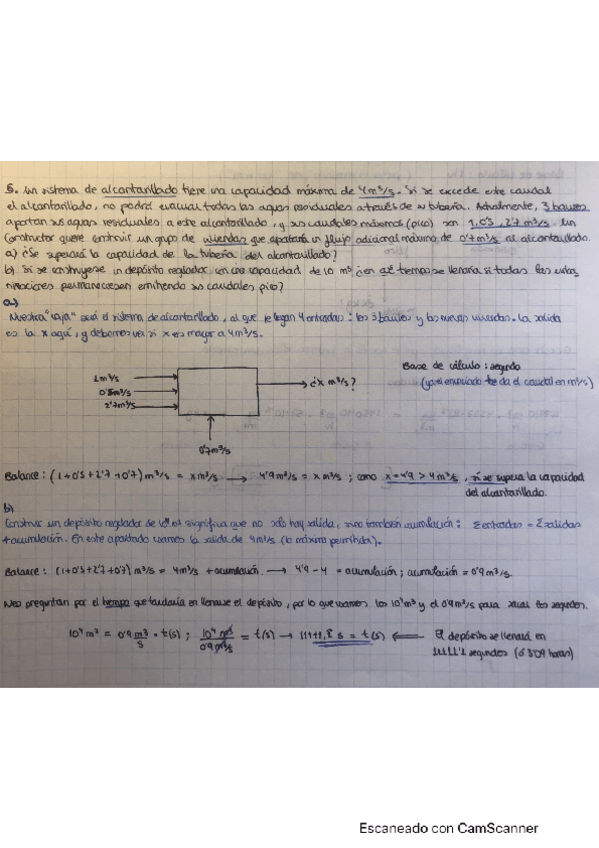 5. Un sistema de alcantarillado tiene una capacidad máxima de 4 m³/s. Si se excede este caudal
el alcantarillado, no podrá evacuar todas las aguas residuales a través de su tubería. Actualmente, 3 barrios
aportan sus aguas residuales a este alcantarillado, y sus caudales máximos (pico) son 1, 0'5, 2'7 m³/s. Un
constructor quiere construir un grupo de viviendas que aportará un flujo adicional máximo de 0'7 m³/s al alcantarillado.
a) ¿Se superará la capacidad de la tubería del alcantarillado?
b) Si se construyese un depósito regulador con una capacidad de 10 m³ ¿en qué tiempo se llenaría si todas las
permaneciesen emitiendo sus caudales pico?
a)
Nuestra "caja" será el sistema de alcantarillado, al que le llegan 4 entradas: los 3 barrios y las nuevas viviendas. La salida
es la x aquí, y debemos ver si x es mayor a 4 m³/s.
Base de cálculo: segundo
1 m³/s
0'5 m³/s
2'7 m³/s
¿x m³/s?
(ya el enunciado te da el caudal en m³/s)
0'7 m³/s
Balance: (1+0'5+2'7+0'7) m³/s = x m³/s → 4'9 m³/s = x m³/s ; como x = 4'9 > 4 m³/s, sí se supera la capacidad
del alcantarillado.
b)
Construir un depósito regulador de 10⁴ m³ significa que no solo hay salida, sino también acumulación: Σentradas = Σsalidas
+ acumulación. En este apartado usamos la salida de 4 m³/s (lo máximo permitido).
Balance: (1+0'5+2'7+0'7) m³/s = 4 m³/s + acumulación. → 4'9 - 4 = acumulación ; acumulación = 0'9 m³/s.
Nos preguntan por el tiempo que tardaría en llenarse el depósito, por lo que usamos los 10⁴ m³ y el 0'9 m³/s para sacar los segundos.
10⁴ m³ = 0'9 m³/s · t(s) ; 10⁴ m³ / 0'9 m³/s = t(s) → 11111,1 s = t(s) ⇐ El depósito se llenará en
11111'1 segundos (ó 3'09 horas)
Escaneado con CamScanner